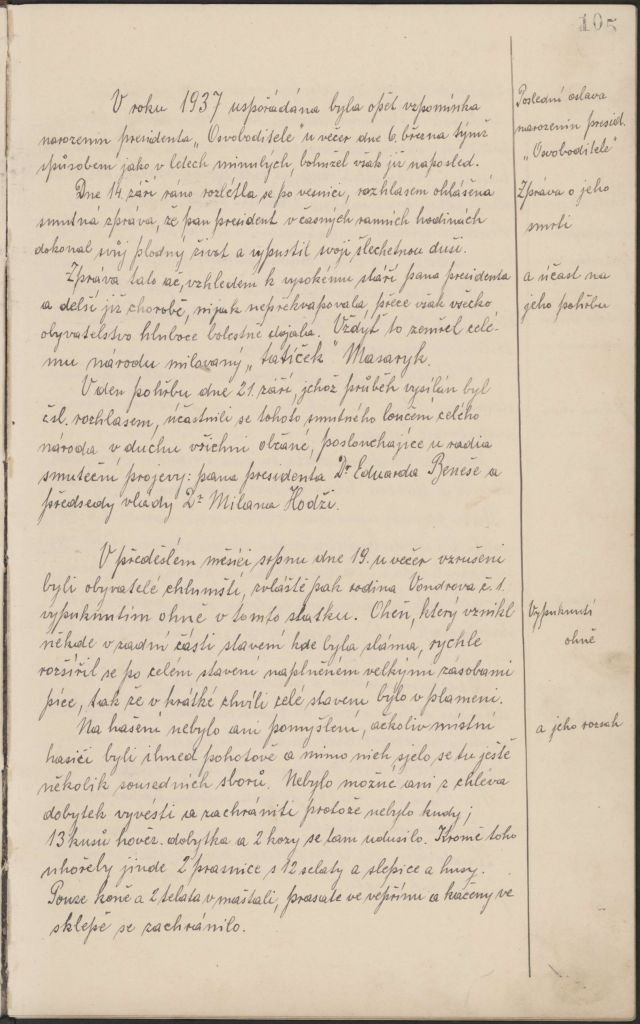 105
V roku 1937 uspořádána byla opět vzpomínka
narozenin presidenta „Osvoboditele" u večer dne 6. března týmž
způsobem jako v letech minulých, bohužel však již naposled.
Dne 14. září ráno rozlétla se po vesnici, rozhlasem ohlášená
smutná zpráva, že pan president v časných ranních hodinách
dokonal svůj plodný život a vypustil svoji šlechetnou duši.
Zpráva tato ač, vzhledem k vysokému stáří pana presidenta
a delší již chorobě, nijak nepřekvapovala, přece však všecko
obyvatelstvo hluboce bolestně dojala. Vždyť to zemřel celé-
mu národu milovaný „tatíček" Masaryk.
V den pohřbu dne 21. září, jehož průběh vysílán byl
čsl. rozhlasem, účastnili se tohoto smutného loučení celého
národa v duchu všichni občané, poslouchajíce u radia
smuteční projevy: pana presidenta Dr Eduarda Beneše a
předsedy vlády Dr Milana Hodži.
V předešlém měsíci srpnu dne 19. u večer vzrušeni
byli obyvatelé chlumští, zvláště pak rodina Vondrova č. 1.
vypuknutím ohně v tomto statku. Oheň, který vznikl
někde v zadní části stavení kde byla sláma, rychle
rozšířil se po celém stavení naplněném velkými zásobami
píce, tak že v krátké chvíli celé stavení bylo v plameni.
Na hašení nebylo ani pomyšlení, ačkoliv místní
hasiči byli ihned pohotově a mimo nich sjelo se tu ještě
několik sousedních sborů. Nebylo možné ani z chléva
dobytek vyvésti a zachrániti protože nebylo kudy;
13 kusů hověz. dobytka a 2 kozy se tam udusilo. Kromě toho
uhořely jinde 2 prasnice s 12 selaty a slepice a husy.
Pouze koně a 2 telata v maštali, prasate ve vepřínu a kačeny ve
sklepě se zachránilo.
Poslední oslava
narozenin presid.
„Osvoboditele"
Zpráva o jeho
smrti
a účast na
jeho pohřbu
Vypuknutí
ohně
a jeho rozsah